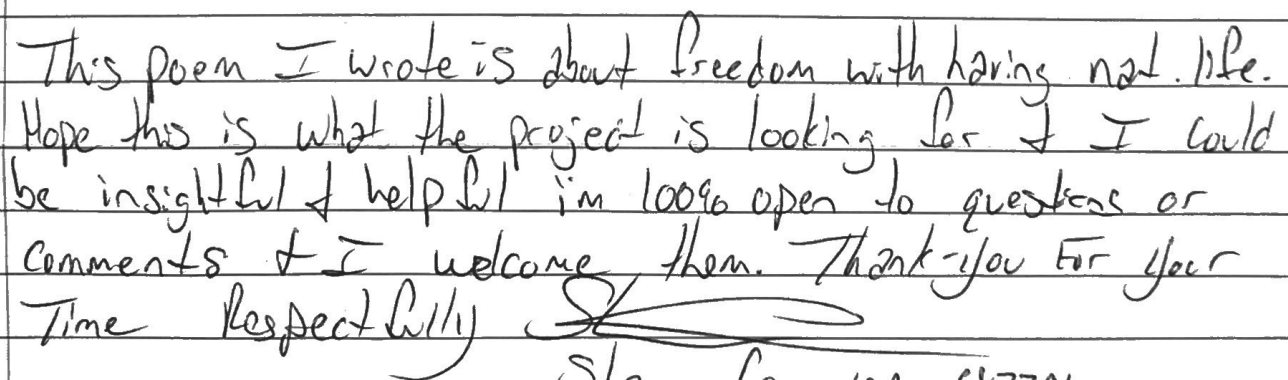 This poem I wrote is about freedom with having nat. life.
Hope this is what the project is looking for & I could
be insightful & helpful im 100% open to questions or
comments & I welcome them. Thank-you For your
Time Respectfully